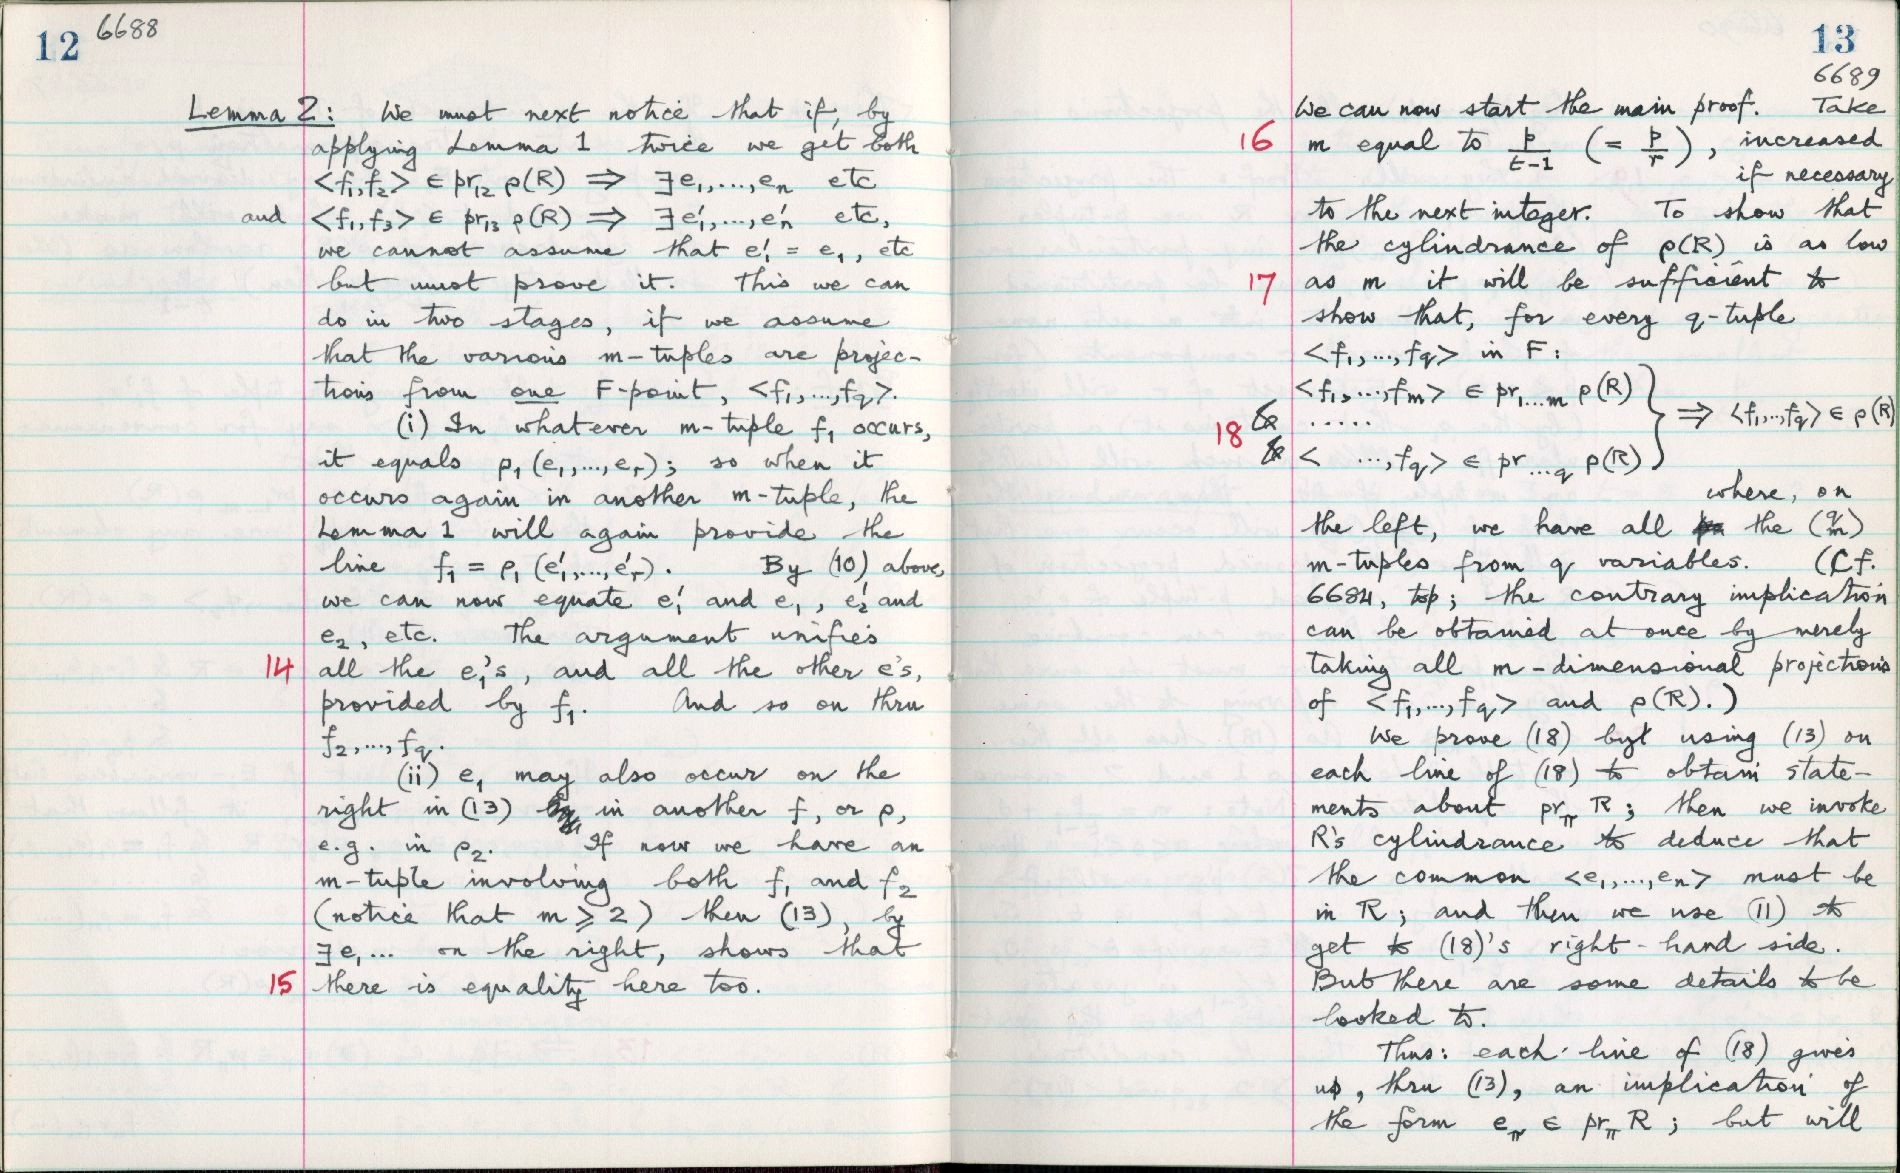 12 6688
Lemma 2: We must next notice that if, by
applying Lemma 1 twice we get both
<f₁,f₂> ∈ pr₁₂ ρ(R) ⇒ ∃e₁,...,eₙ etc
and <f₁,f₃> ∈ pr₁₃ ρ(R) ⇒ ∃e₁',...,eₙ' etc,
we cannot assume that e₁' = e₁, etc
but must prove it. This we can
do in two stages, if we assume
that the various m-tuples are projec-
tions from one F-point, <f₁,...,f_q>.
(i) In whatever m-tuple f₁ occurs,
it equals ρ₁(e₁,...,eᵣ); so when it
occurs again in another m-tuple, the
Lemma 1 will again provide the
line f₁ = ρ₁(e₁',...,eᵣ'). By (10) above,
we can now equate e₁' and e₁, e₂' and
e₂, etc. The argument unifies
14 all the e₁'s, and all the other e's,
provided by f₁. And so on thru
f₂,...,f_q.
(ii) e₁ may also occur on the
right in (13) in another f, or ρ,
e.g. in ρ₂. If now we have an
m-tuple involving both f₁ and f₂
(notice that m ⩾ 2) then (13), by
∃e₁... on the right, shows that
15 there is equality here too.
13
6689
We can now start the main proof. Take
16 m equal to p/(t-1) (= p/r), increased
if necessary
to the next integer. To show that
the cylindrance of ρ(R) is as low
17 as m it will be sufficient to
show that, for every q-tuple
<f₁,...,f_q> in F:
<f₁,...,fₘ> ∈ pr₁...ₘ ρ(R)
18 & ..... } ⇒ <f₁,..,f_q> ∈ ρ(R)
& < ...,f_q> ∈ pr..._q ρ(R)
where, on
the left, we have all the (q m)
m-tuples from q variables. (Cf.
6684, top; the contrary implication
can be obtained at once by merely
taking all m-dimensional projections
of <f₁,...,f_q> and ρ(R).)
We prove (18) by using (13) on
each line of (18) to obtain state-
ments about pr_π R; then we invoke
R's cylindrance to deduce that
the common <e₁,...,eₙ> must be
in R; and then we use (11) to
get to (18)'s right-hand side.
But there are some details to be
looked to.
Thus: each line of (18) gives
us, thru (13), an implication of
the form e_π ∈ pr_π R; but will